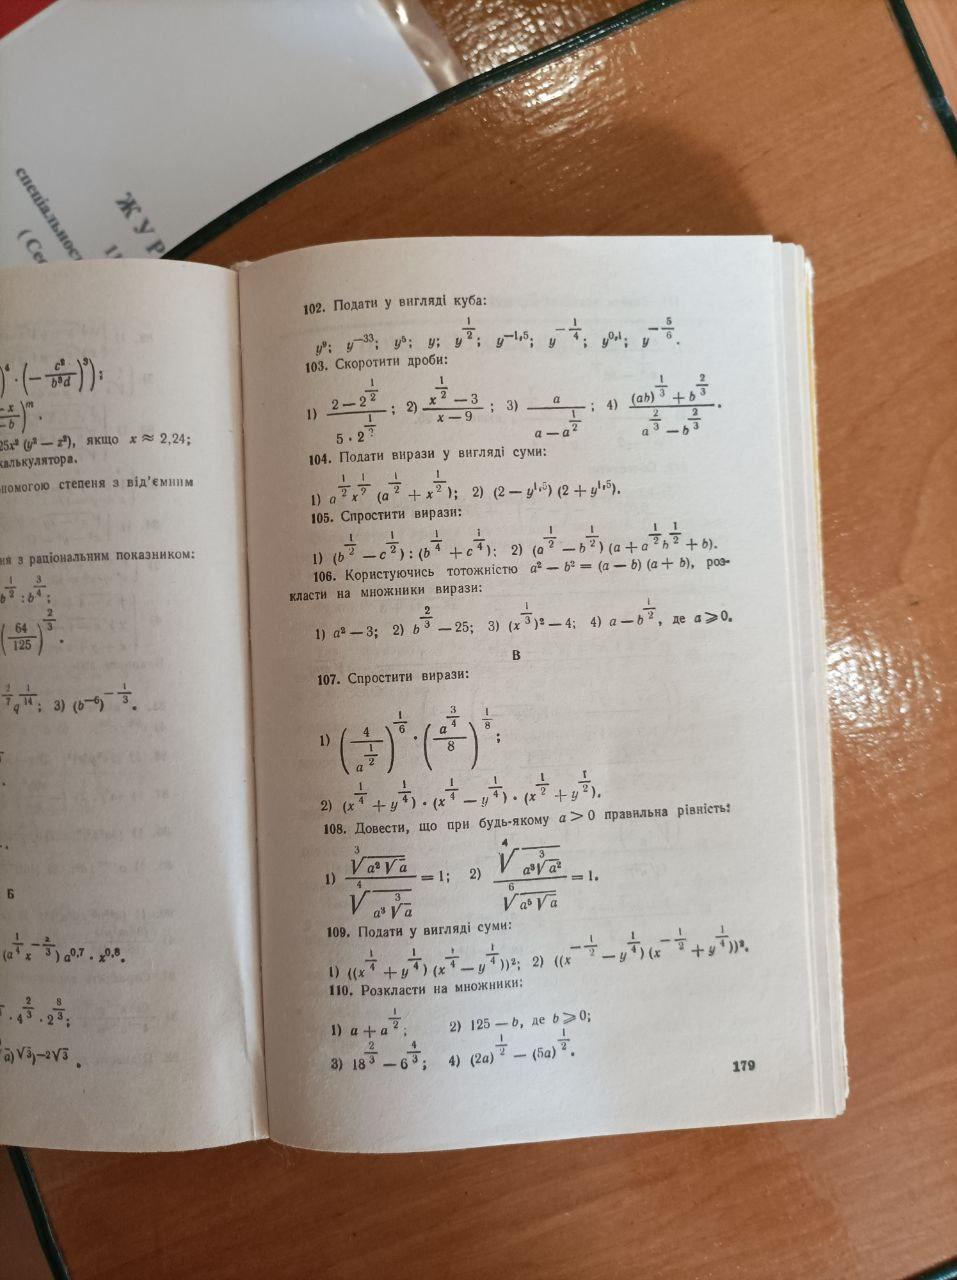 ЖУР
спеціальнос
(Сес
)⁴ · (−c⁸/b³d)³);
−x/−b)ᵐ.
25x² (y² − z²), якщо x ≈ 2,24;
калькулятора.
помогою степеня з від’ємним
ня з раціональним показником:
b^(1/2) : b^(3/4);
(64/125)^(2/3).
q^(1/14); 3) (b⁻⁶)^(−1/3).
Б
(a^(1/4) x^(−2/3)) a^0,7 · x^0,8.
· 4^(2/3) · 2^(8/3);
a)^√3)^−2√3.
102. Подати у вигляді куба:
y⁹; y⁻³³; y⁵; y; y^(1/2); y^−1,5; y^(−1/4); y^0,1; y^(−5/6).
103. Скоротити дроби:
1) (2 − 2^(1/2))/(5 · 2^(1/2)); 2) (x^(1/2) − 3)/(x − 9); 3) a/(a − a^(1/2)); 4) ((ab)^(1/3) + b^(2/3))/(a^(2/3) − b^(2/3)).
104. Подати вирази у вигляді суми:
1) a^(1/2) x^(1/2) (a^(1/2) + x^(1/2)); 2) (2 − y^1,5) (2 + y^1,5).
105. Спростити вирази:
1) (b^(1/2) − c^(1/2)) : (b^(1/4) + c^(1/4)); 2) (a^(1/2) − b^(1/2)) (a + a^(1/2) b^(1/2) + b).
106. Користуючись тотожністю a² − b² = (a − b) (a + b), роз-
класти на множники вирази:
1) a² − 3; 2) b^(2/3) − 25; 3) (x^(1/3))² − 4; 4) a − b^(1/2), де a ⩾ 0.
В
107. Спростити вирази:
1) (4/a^(1/2))^(1/6) · (a^(3/4)/8)^(1/8);
2) (x^(1/4) + y^(1/4)) · (x^(1/4) − y^(1/4)) · (x^(1/2) + y^(1/2)).
108. Довести, що при будь-якому a > 0 правильна рівність:
1) ∛(a²√a)/∜(a³∛a) = 1; 2) ∜(a³∛a²)/⁶√(a⁵√a) = 1.
109. Подати у вигляді суми:
1) ((x^(1/4) + y^(1/4)) (x^(1/4) − y^(1/4)))²; 2) ((x^(−1/2) − y^(1/4) (x^(−1/2) + y^(1/4)))².
110. Розкласти на множники:
1) a + a^(1/2); 2) 125 − b, де b ⩾ 0;
3) 18^(2/3) − 6^(4/3); 4) (2a)^(1/2) − (5a)^(1/2).
179